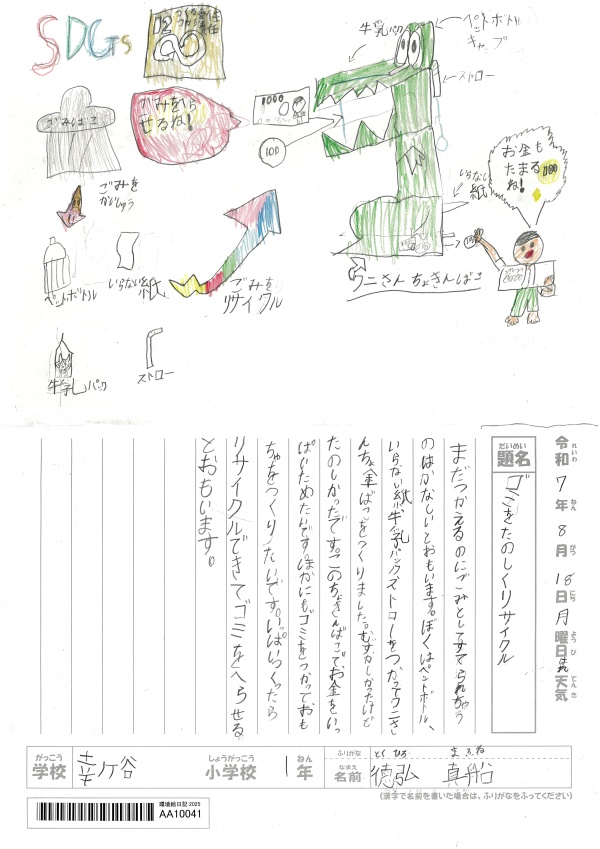 SDGs
12 つくる責任 つかう責任
ごみばこ
ごみをへら
せるね!
1000
100
牛乳パック
ペットボトル
キャップ
ストロー
いらない
紙
お金も
たまる
ね!
100
ワニさんちょきんばこ
ごみを
かいしゅう
ペットボトル
いらない紙
ごみを
リサイクル
牛乳パック
ストロー
令和7年8月18日月曜日 天気
れいわ ねん がつ にち ようび てんき
だいめい
題名
ゴミをたのしくリサイクル
まだつかえるのにごみとしてすてられちゃう
のはかなしいとおもいます。ぼくはペットボトル、
いらない紙、牛乳パック、ストローをつかってワニさ
んちょ金ばこをつくりました。むずかしかったけど
たのしかったです。このちょきんばこでお金をいっ
ぱいためたいです。ほかにもゴミをつかっておも
ちゃをつくりたいです。いっぱいつくったら
リサイクルできてゴミをへらせる
とおもいます。
がっこう
学校
幸ケ谷
しょうがっこう
小学校
1
ねん
年
ふりがな
とくひろ まふね
なまえ
名前
德弘 真船
(漢字で名前を書いた場合は、ふりがなをふってください)
環境絵日記 2025
AA10041